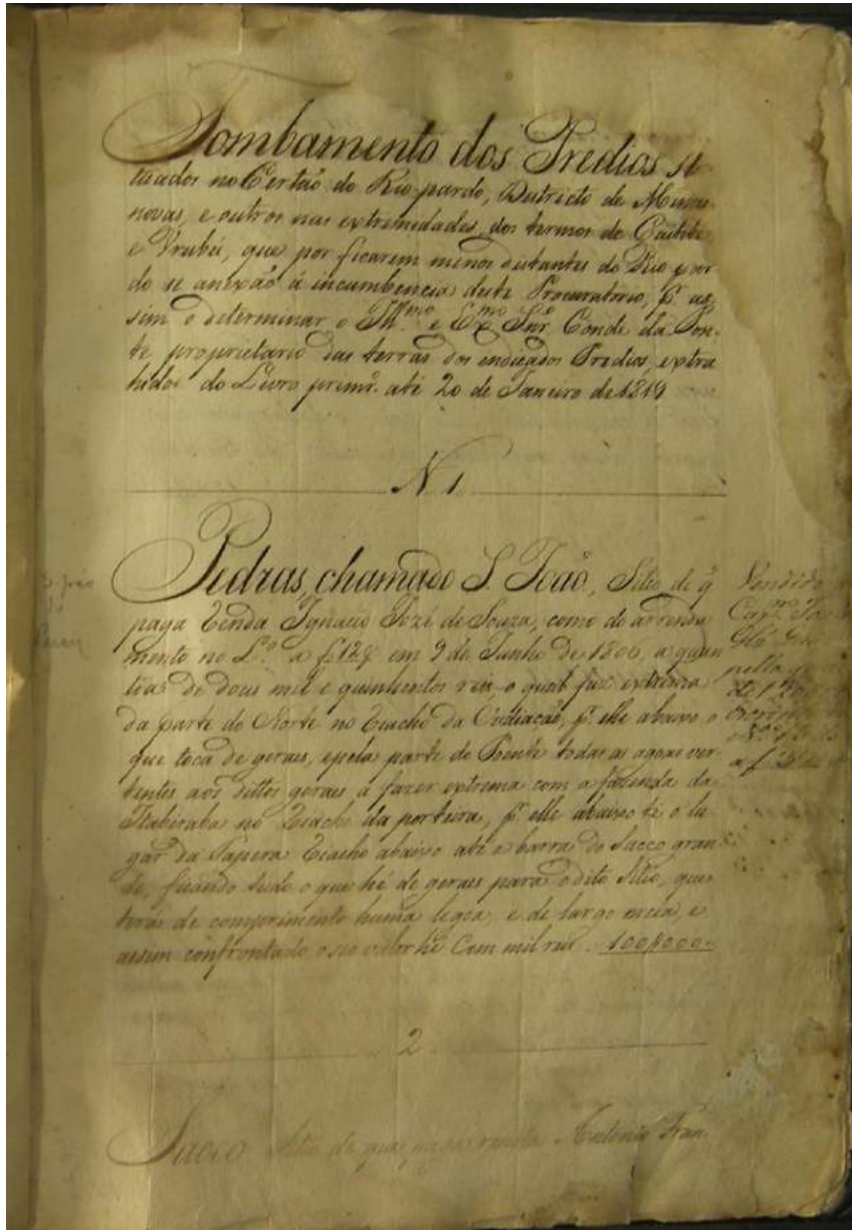 Tombamento dos Predios si
tuados no Certaõ do Rio pardo, Districto de Minas
novas, e outros nas extremidades dos termos de Caitite
e Vrubú, que por ficarem menos distantes do Rio par
do se anexaõ á incumbencia deste Procuratorio, pr. as
sim o determinar o Illmo. e Exmo. Snr. Conde da Pon
te proprietario das terras dos indicados Predios, extra
hidos do Livro primr. até 20 de Janeiro de 1819
N 1
Pedras, chamado S. Joaõ, Sitio de q̃
paga Renda Ignacio Jozé de Souza, como do arrenda
mento no L.º a f 128 em 9 de Junho de 1806, a quan
tia de dous mil e quinhentos reis o qual faz extrema
da parte do Norte no Riacho da pr. elle abaixo o
que toca de geraes, e pela parte do Poente todas as agoas ver
tentes aos dittos geraes a fazer extrema com a fazenda da
Itaberaba no Riacho da porteira, pr. elle abaixo té o lu
gar da Tapera Riacho abaixo até a barra do Sacco gran
de, ficando tudo o que hé de geraes para o dito Sitio, que
terá de comprimento huma legoa, e de largo meia, e
assim confrontado o seo valor hé Cem mil reis 100$000
Vendido
2
Sacco Sitio de que paga renda Antonio Fran